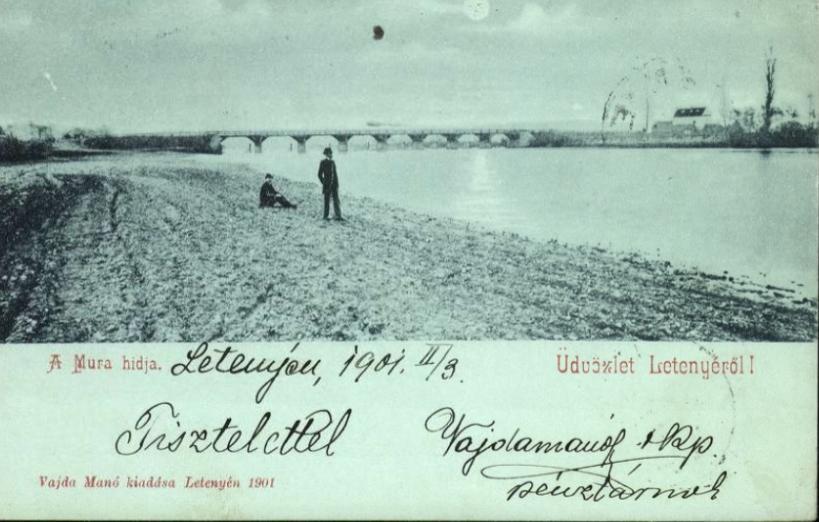 A Mura hidja. Letenyén, 1901. II/3. Üdvözlet Letenyéről!
Tisztelettel
pénztárnok
Vajda Manó kiadása Letenyén 1901